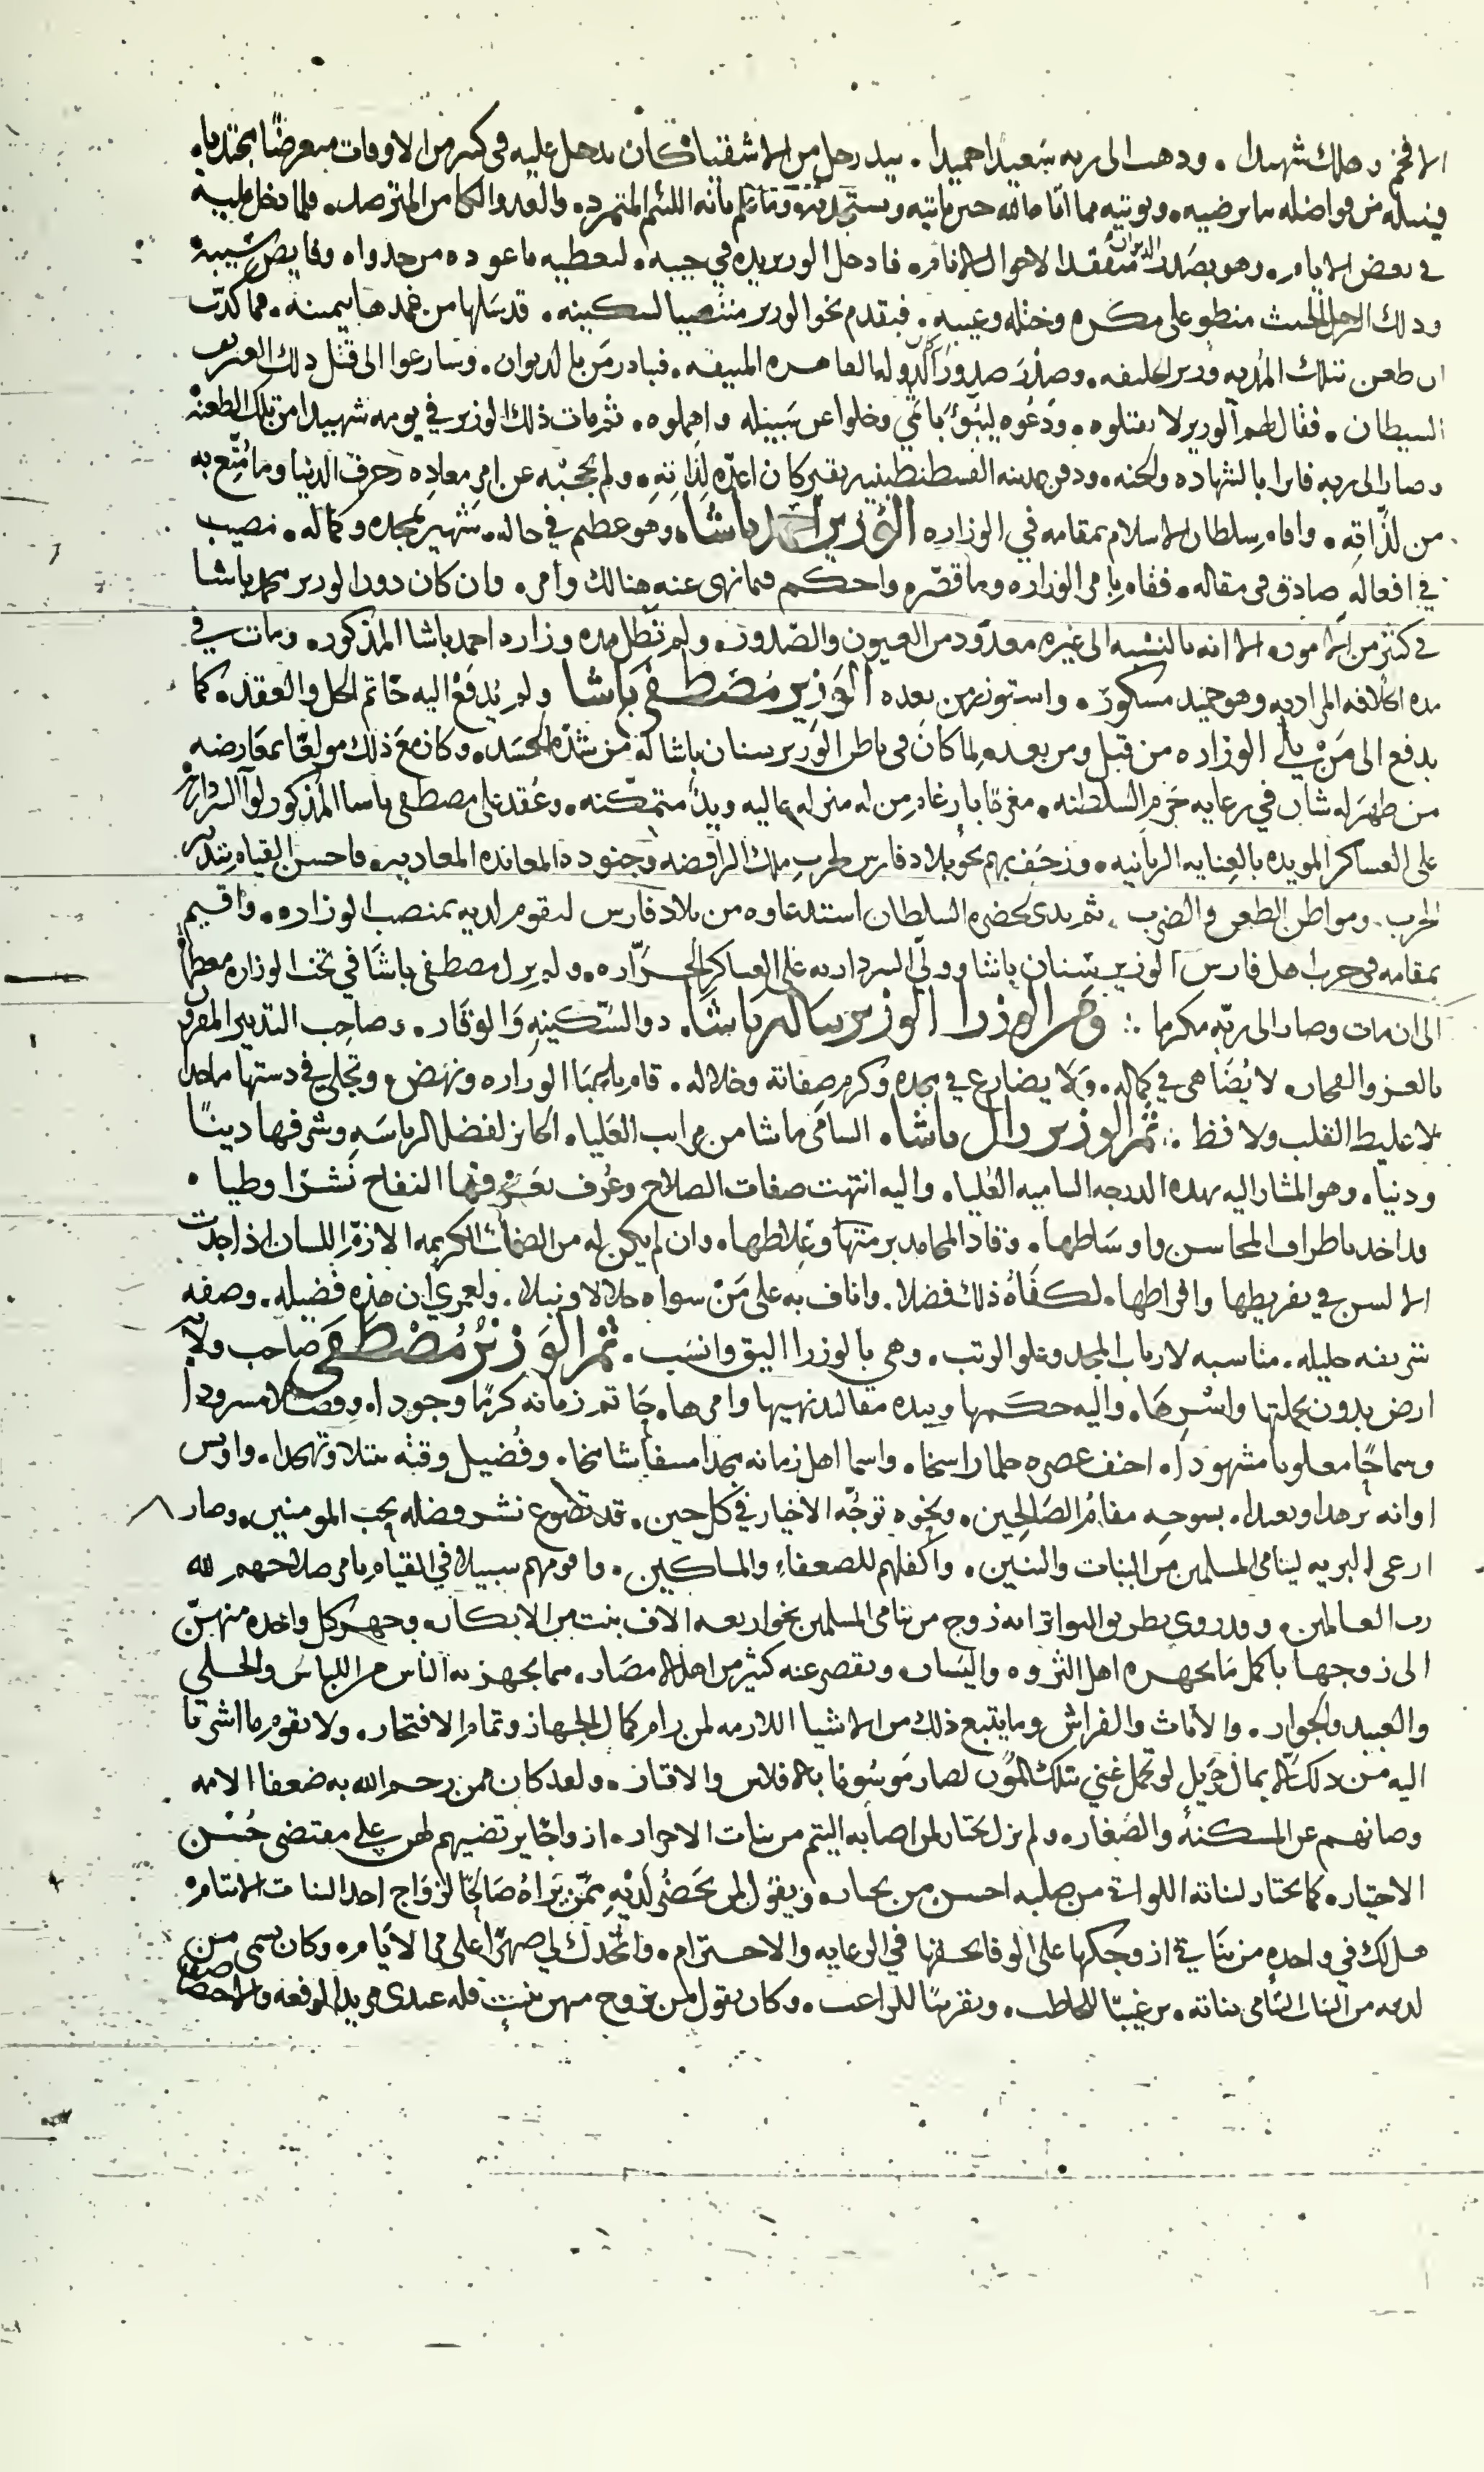 الافخم وهلك شهيدا . وذهب الى ربه سعيدا حميدا . بيد رجل من الاشقيا كان يدخل عليه في كثير من الاوقات متعرضًا بجتدياه
فينيله من فواضله ما يرضيه . ويوتيه مما اتاه الله حين ياتيه وما علم بانه اللئيم المتمرد . والعدو الكامن المترصد . فلما دخل عليه
في بعض الايام . وهو بصدر الديوان متفقدا لاحوال الانام . فادخل الوزير يده في جيبه . ليعطيه ما عوده من جدواه وفايض سيبه
وذلك الرجل الخبيث منطو على مكره وختله وعيبه . فيقدم نحو الوزير منتضيا لسكينه . قد سلها من غمدها بيمينه . فما كذب
ان طعن بتلك المديه وزير الخليفه . وصدر صدور الدوله القاهره المنيفه . فبادر من بالديوان . وسارعوا الى قتل ذلك العريف
السيطان . فقال لهم الوزير لا تقتلوه . ودعوه ليبؤ باثمي وخلوا عن سبيله واهملوه . ثم مات ذلك الوزير في يومه شهيدا من تلك الطعنه
وصار الى ربه فايزا بالشهاده والجنه . ودفن بمدينه القسطنطينيه بقبر كان اعده لذاته . ولم يحجبه عن امر معاده زخرف الدنيا وما متع به
من لذاته . واقام سلطان الاسلام بمقامه في الوزاره الوزير احمد باشا . وهو عظيم في حاله . شهير بمجده وكماله . مصيب
في افعاله صادق في مقاله . فقام بامر الوزاره وما قصر واحكم فيما نهى عنه هنالك وامر . وان كان دون الوزير محمد باشا
في كثير من الامور . الا انه بالنسبه الى غيره معدود من العيون والصدور . ولم تطل مده وزاره احمد باشا المذكور . ومات في
مده الخلافه المراديه وهو حميد مسكور . واستوزر من بعده الوزير مصطفى باشا ولم يدفع اليه خاتم الحل والعقد . كما
يدفع الى من يلي الوزاره من قبل ومن بعد . لما كان في باطن الوزير سنان باشا له من شدة الحسد . وكان مع ذلك مولعًا بمعارضه
من ظهر له شان في رعايه حرم السلطنه . مغرمًا بارغام من له منزله عاليه ويدًا متمكنه . وعقد على مصطفى باسا المذكور لوا السرداريه
على العساكر المويده بالعنايه الربانيه . وزحف بهم نحو بلاد فارس لحرب ملك الرافضه وجنود المعانده المعاديه . فاحسن القيام بتدبير
الحرب . ومواطن الطعن والضرب . ثم بدى لحضره السلطان استدعاوه من بلاد فارس ليقوم لديه بمنصب الوزاره . واقيم
بمقامه في حرب اهل فارس الوزير سنان باشا وولي السرداريه على العساكر الجراره . ولم يزل مصطفى باشا في تخت الوزاره معظما
الى ان مات وصار الى ربه مكرما . ومن الوزرا الوزير باشا . ذو السكينه والوقار . وصاحب التدبير المقرون
بالعز والفخار . لا يضاهى في كماله . ولا يضارع في مجده وكرم صفاته وخلاله . قام باعبا الوزاره ونهض وتجلى في دستها ماجدا
لا غليظ القلب ولا فظ . ثم الوزير باشا . السامي باشا من مراتب العليا . الحايز لفضل الرياسه وشرفها دينًا
ودنيا . وهو المشار اليه بهذه الدرجه الساميه العليا . واليه انتهت صفات الصلاح وعرف بعرفها النفاح نشرًا وطيا .
وياخذ باطراف المحاسن واوساطها . وقاد المحامد برمتها وان لم يكن له من الصفات الكريمه الا اللسان اذا جدت
الالسن في تفريطها وافراطها . لكفاه ذلك فضلا . واناف به على من سواه جلالا ونبلا . ولعمري ان هذه فضيله . وصفه
شريفه جليله . مناسبه لارباب المجد وعلو الرتب . وهي بالوزرا اليق وانسب . ثم الوزير مصطفى صاحب ولاية
ارض بدون بجملتها واسرها . واليه حكمها وبيده مقاليد نهيها وامرها . حاتم زمانه كرمًا وجودا . وفضلا مسرودا
وسماحًا معلوما مشهودا . احنف عصره حلما راسخا . واسما اهل زمانه مجدا منيفا شامخا . وفضيل وقته تبتلا وتهجدا . واويس
اوانه تزهدا وتعبدا . بسوحه مقام الصالحين . ونحوه توجه الاخيار في كل حين . قد تضوع نشر فضله بحب المومنين . وصار
ارعى البريه ليتامى المسلمين من البنات والبنين . واكفلهم للضعفاء والمساكين . واقومهم سبيلا في القيام بامر صلاحهم لله
رب العالمين . وقد روي بطريق التواتر انه زوج من يتامى المسلمين نحو اربعه الاف بنت من الابكار . وجهز كل واحده منهن
الى زوجها باكمل ما يجهزه اهل الثروه واليسار . ويقصر عنه كثير من اهل الامصار . مما يجهز به الناس من اللباس والحلي
والعبيد والجوار . والاثاث والفراش وما يتبع ذلك من الاشيا اللازمه لمن رام كمال الجهاز وتمام الافتخار . ولا يقوم ما اشرنا
اليه من ذلك الا بمال جزيل لو تحمل غني بتلك المؤن لصار موسوما بالافلاس والاقتار . ولقد كان ممن رحم الله به ضعفا الامه
وصانهم عن المسكنة والصغار . ولم يزل يختار لمن اصابه اليتم من بنات الاحرار . ازواجًا يرتضيهم لهن على مقتضى حسن
الاختيار . كما يختار لبناته اللواتي من صلبه احسن من يختار . ويقول لمن يحضر لديه ممن يراه صالحًا لزواج احد البنات الايتام
هل لك في واحده من بناتي ازوجكها على الوفا بحقها في الرعايه والاحترام . واتخذك لي صهرًا على مر الايام . وكان يسمي من
لديه من البنات اليتامى بناته . ترغيبًا للخاطب . وتقريبًا للراغب . وكان يقول لمن تزوج منهن بنت فله عندي مزيد الرفعه والاختصاص